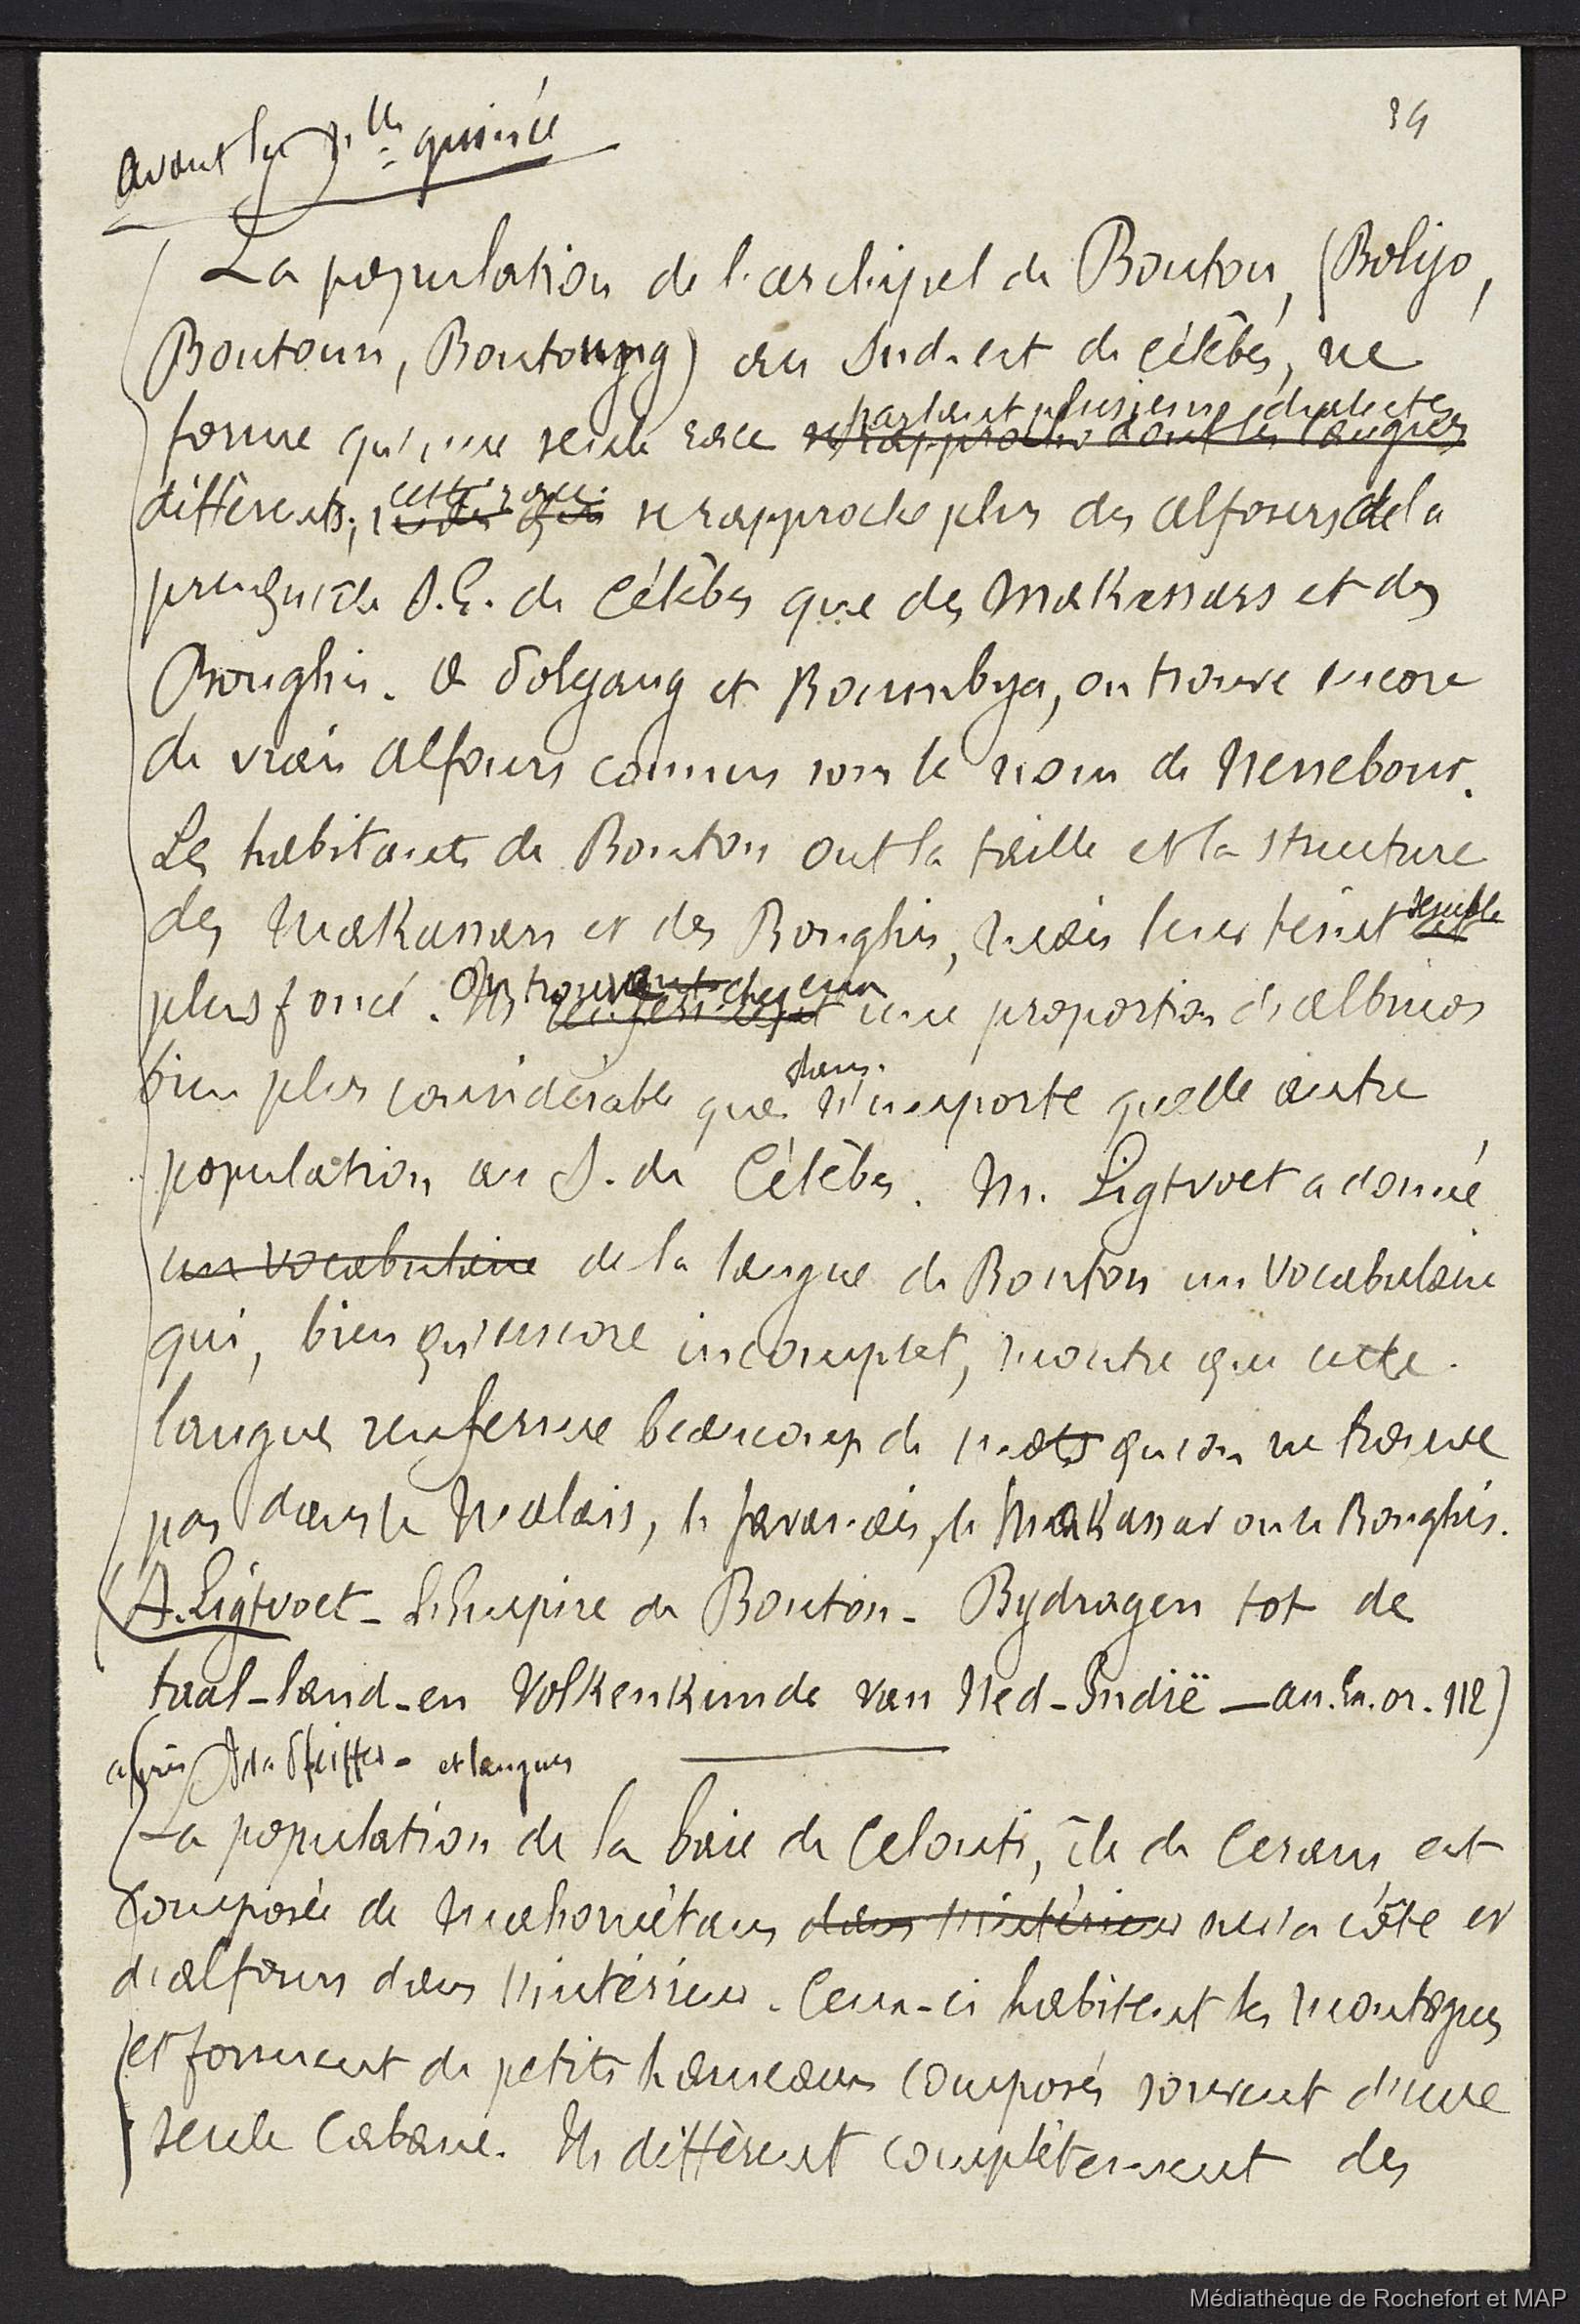 39
avant la Nlle guinée
La population de l'archipel de Bouton, (Bolijo,
Boutoun, Boutoung) au Sud-est de Célèbes, ne
forme qu'une seule race parlant plusieurs dialectes
se rapproche dont les langues
différents; cette race se rapproche plus des alfours de la
presqu'île S.E. de Célèbes que des Makassars et des
Boughis. A Tolyang et Boumbya, on trouve encore
de vrais alfours connus sous le nom de Nessebour.
Les habitants de Bouton ont la taille et la structure
des Makassars et des Boughis, mais leur teint semble est
plus foncé. On trouve chez eux
Ils renferment une proportion d'albinos
bien plus considérable que dans n'importe quelle autre
population au S. de Célèbes. M. Ligtvoet a donné
un vocabulaire de la langue de Bouton un vocabulaire
qui, bien qu'encore incomplet, montre que cette
langue renferme beaucoup de mots qu'on ne trouve
pas dans le Malais, le javanais, le Makassar ou le Boughis.
(A. Ligtvoet - L'Empire de Bouton - Bydragen tot de
taal-land-en Volkenkunde van Ned-Indië — an. Ex. or. 112)
après Ida Pfeiffer - et langues
La population de la baie de Celouti, île de Ceram, est
composée de mahométans dans l'intérieur sur la côte et
d'alfours dans l'intérieur. Ceux-ci habitent les montagnes
et forment de petits hameaux composés souvent d'une
seule cabane. Ils diffèrent complètement des
Médiathèque de Rochefort et MAP